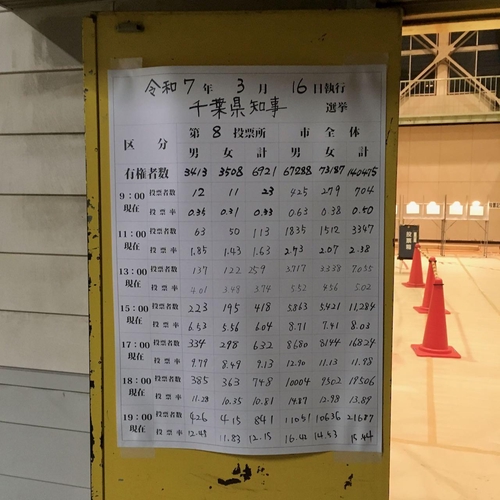 令和7年 3月 16日執行
千葉県知事 選挙
区分 第8投票所 市全体
男 女 計 男 女 計
有権者数 3413 3508 6921 67288 73187 140475
9:00 投票者数 12 11 23 425 279 704
現在 投票率 0.35 0.31 0.33 0.63 0.38 0.50
11:00 投票者数 63 50 113 1835 1512 3347
現在 投票率 1.85 1.43 1.63 2.73 2.07 2.38
13:00 投票者数 137 122 259 3717 3338 7055
現在 投票率 4.01 3.48 3.74 5.52 4.56 5.02
15:00 投票者数 223 195 418 5,863 5,421 11,284
現在 投票率 6.53 5.56 6.04 8.71 7.41 8.03
17:00 投票者数 334 298 632 8680 8144 16824
現在 投票率 9.79 8.49 9.13 12.90 11.13 11.98
18:00 投票者数 385 363 748 10004 9502 19506
現在 投票率 11.28 10.35 10.81 14.87 12.98 13.89
19:00 投票者数 426 415 841 11051 10636 21687
現在 投票率 12.48 11.83 12.15 16.42 14.53 15.44
投票箱